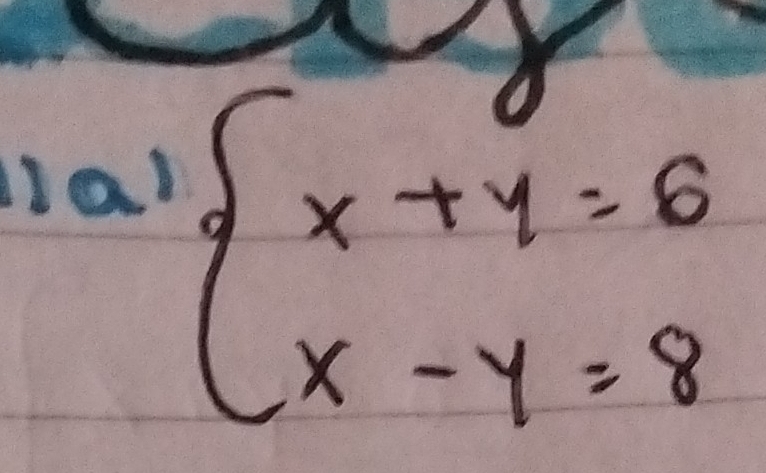 1)a) { x + y = 6
x - y = 8